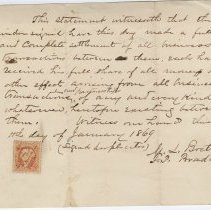 This statement witnesseth that the
undersigned have this day made a full
and complete settlement of all business
transactions between them, each has
received his full share of all money
other effects arising from all business
transactions of any and every kind
whatsoever, heretofore existing between
them. Witness our hands this
11th day of January 1869
(Signed duplicates)